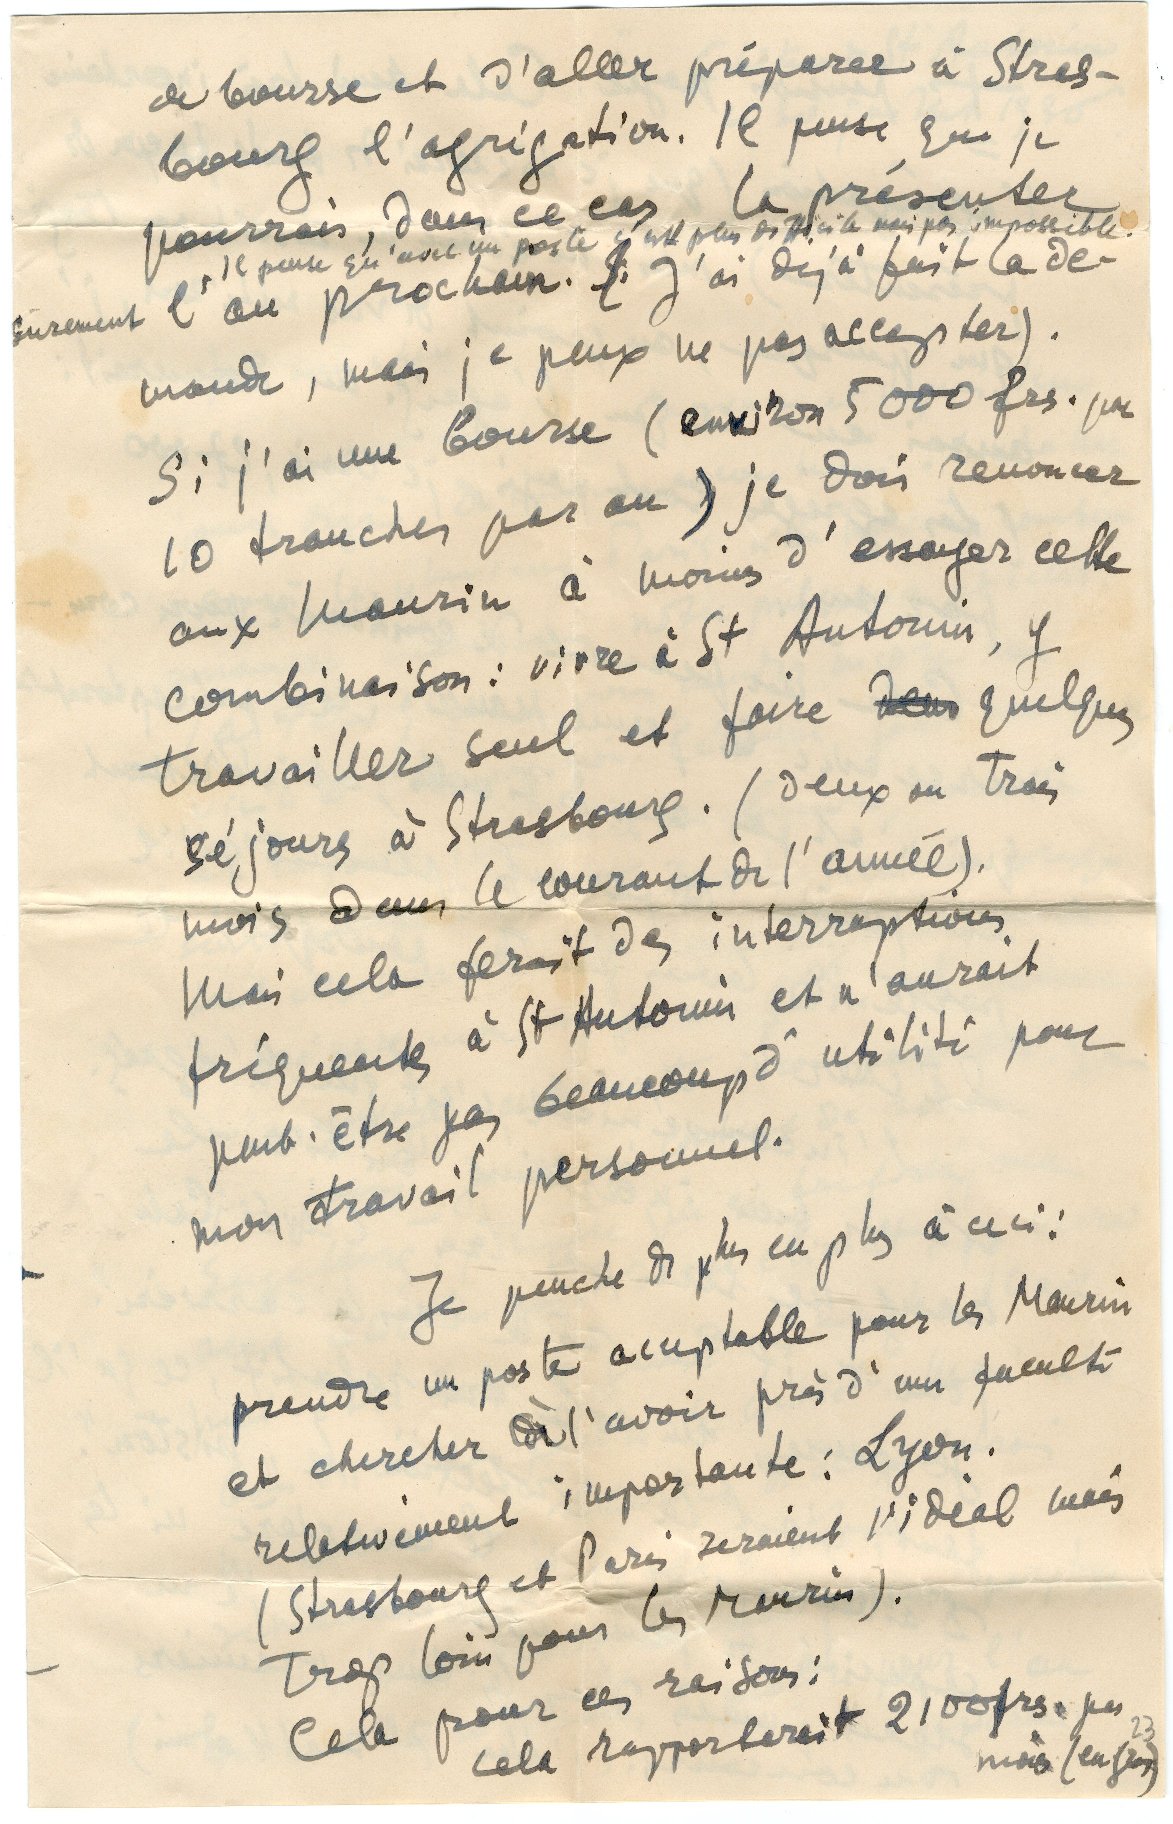 de bourse et d'aller préparer à Stras-
bourg l'agrégation. Il pense que je
pourrais, dans ce cas la présenter
Il pense qu'avec un poste c'est plus difficile mais pas impossible.
sûrement l'an prochain. J'ai déjà fait la de-
mande, mais je peux ne pas accepter).
Si j'ai une bourse (environ 5000 frs. par
10 tranches par an) je dois renoncer
aux Maurin à moins d'essayer cette
combinaison : vivre à St Antonin, y
travailler seul et faire quelques
séjours à Strasbourg. (deux ou trois
mois dans le courant de l'année).
Mais cela ferait des interruptions
fréquentes à St Antonin et n'aurait
peut-être pas beaucoup d'utilité pour
mon travail personnel.
Je penche de plus en plus à ceci :
prendre un poste acceptable pour les Maurin
et chercher à l'avoir près d'une faculté
relativement importante : Lyon.
(Strasbourg et Paris seraient l'idéal mais
trop loin pour les Maurin).
Cela pour ces raisons :
cela rapporterait 2100 frs. par
mois (en gros)
23